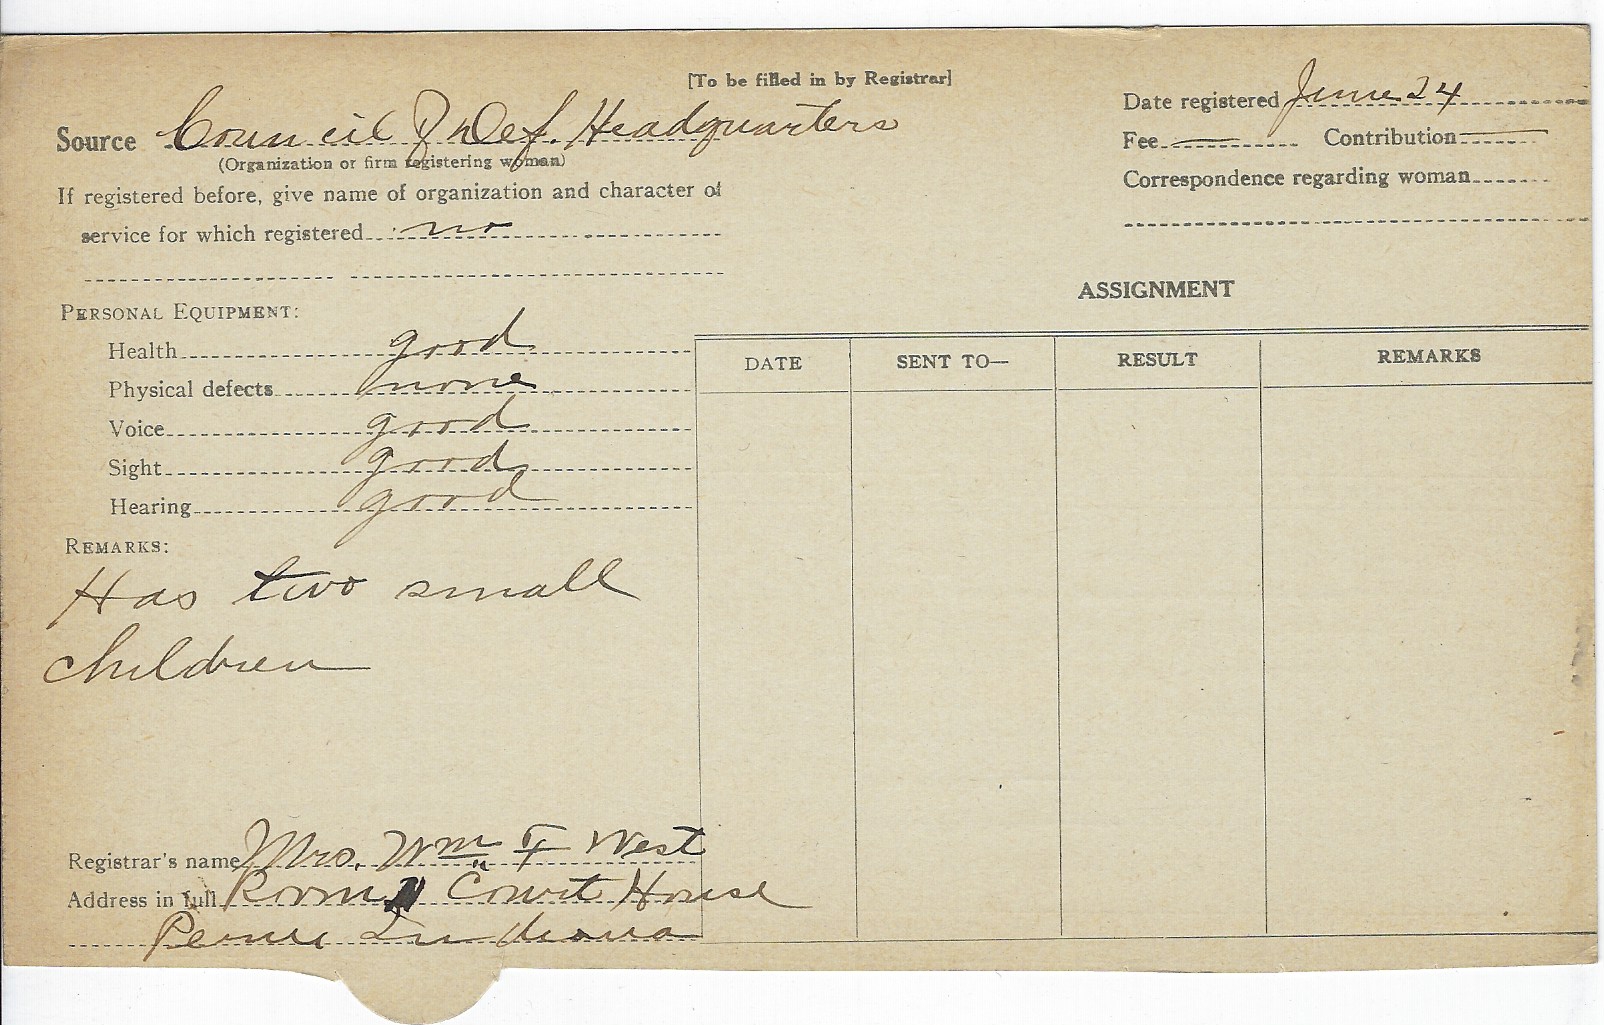 [To be filled in by Registrar]
Source Council of Def. Headquarters
(Organization or firm registering woman)
If registered before, give name of organization and character of
service for which registered no
Date registered June 24
Fee Contribution
Correspondence regarding woman
PERSONAL EQUIPMENT:
Health good
Physical defects none
Voice good
Sight good
Hearing good
REMARKS:
Has two small
children
ASSIGNMENT
DATE SENT TO— RESULT REMARKS
Registrar's name Mrs. Wm F West
Address in full Room Court House
Indiana